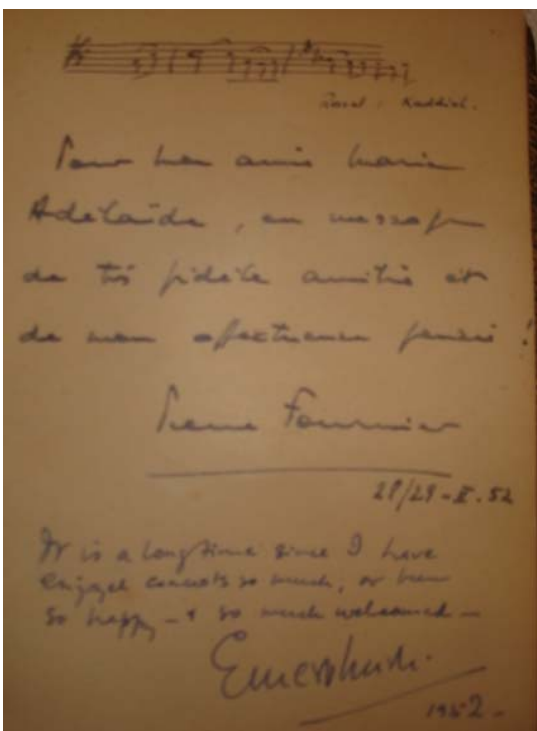 Ravel. Kaddish.
Pour mon amie Maria
Adélaïde, en message
de très fidèle amitié et
de mon affectueuse pensée !
Pierre Fournier
28/29-II.52
It is a long time since I have
enjoyed concerts so much, or been
so happy - & so much welcomed -
Ernest Lush.
1952 -